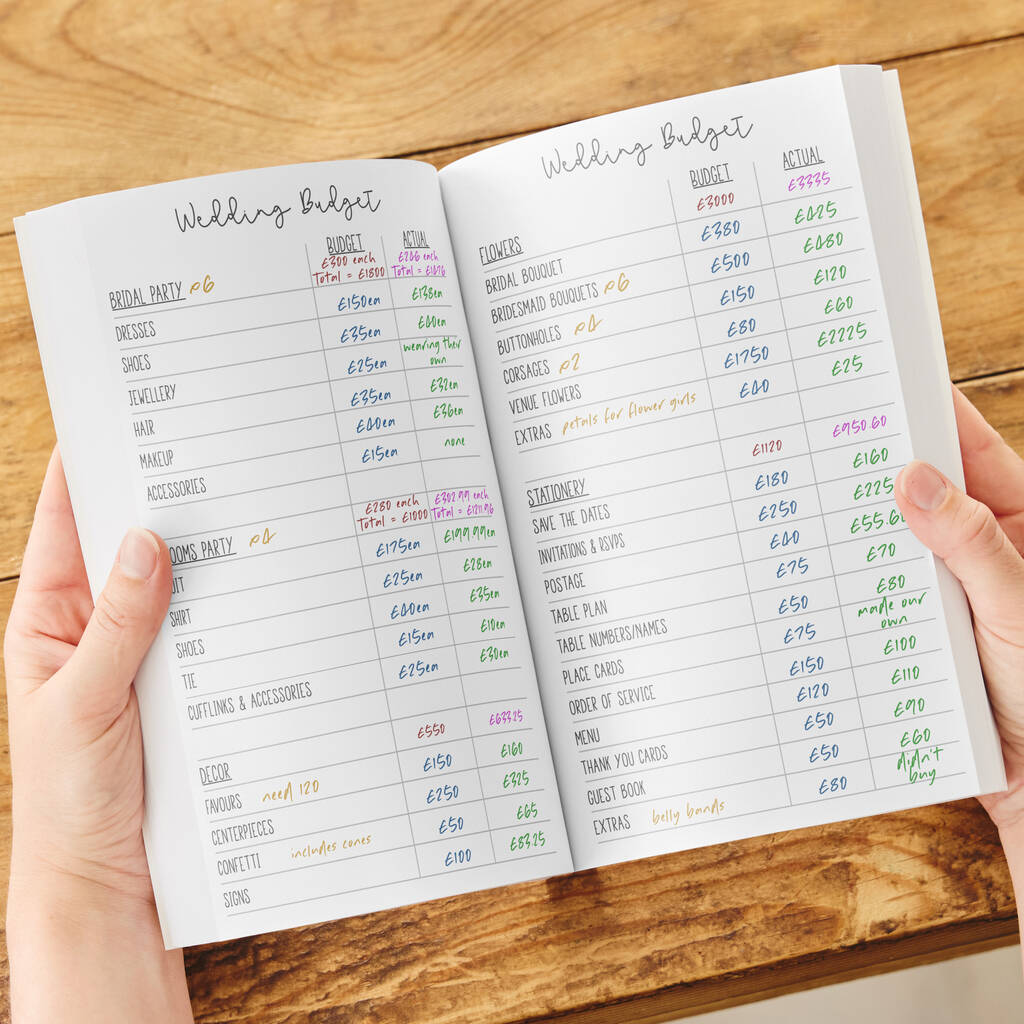 Wedding Budget
BUDGET ACTUAL
BRIDAL PARTY x6 £300 each £246 each
Total = £1800 Total = £1476
DRESSES £150ea £138ea
SHOES £35ea £40ea
JEWELLERY £25ea wearing ther
own
HAIR £35ea £32ea
MAKEUP £40ea £36ea
ACCESSORIES £15ea none
OOMS PARTY x4 £280 each £302.99 each
Total = £1000 Total = £1211.96
UIT £175ea £199.99ea
SHIRT £25ea £28ea
SHOES £40ea £35ea
TIE £15ea £10ea
CUFFLINKS & ACCESSORIES £25ea £30ea
DECOR £550 £633.25
FAVOURS need 120 £150 £160
CENTERPIECES £250 £325
CONFETTI includes cones £50 £65
SIGNS £100 £83.25
Wedding Budget
BUDGET ACTUAL
FLOWERS £3000 £3335
BRIDAL BOUQUET £380 £425
BRIDESMAID BOUQUETS x6 £500 £480
BUTTONHOLES x4 £150 £120
CORSAGES x2 £80 £60
VENUE FLOWERS £1750 £2225
EXTRAS petals for flower girls £40 £25
STATIONERY £1120 £950.60
SAVE THE DATES £180 £160
INVITATIONS & RSVPS £250 £225
POSTAGE £40 £55.60
TABLE PLAN £75 £70
TABLE NUMBERS/NAMES £50 £80
PLACE CARDS £75 made our
own
ORDER OF SERVICE £150 £100
MENU £120 £110
THANK YOU CARDS £50 £90
GUEST BOOK £50 £60
EXTRAS belly bands £80 didn't
buy